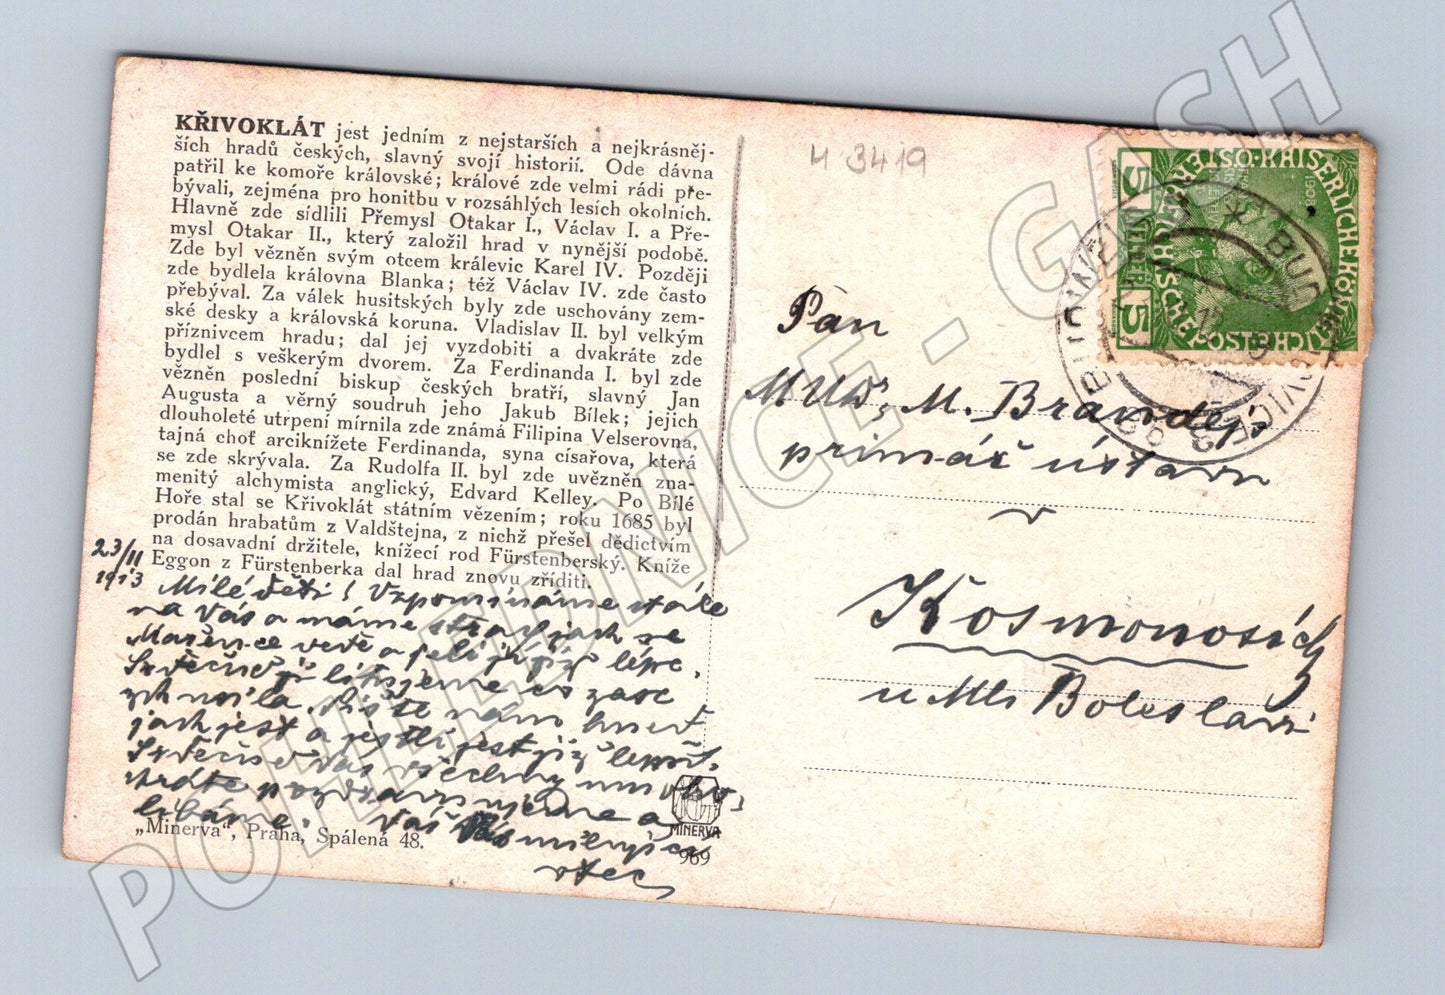 KŘIVOKLÁT jest jedním z nejstarších a nejkrásněj-
ších hradů českých, slavný svojí historií. Ode dávna
patřil ke komoře královské; králové zde velmi rádi pře-
bývali, zejména pro honitbu v rozsáhlých lesích okolních.
Hlavně zde sídlili Přemysl Otakar I., Václav I. a Pře-
mysl Otakar II., který založil hrad v nynější podobě.
Zde byl vězněn svým otcem králevic Karel IV. Později
zde bydlela královna Blanka; též Václav IV. zde často
přebýval. Za válek husitských byly zde uschovány zem-
ské desky a královská koruna. Vladislav II. byl velkým
příznivcem hradu; dal jej vyzdobiti a dvakráte zde
bydlel s veškerým dvorem. Za Ferdinanda I. byl zde
vězněn poslední biskup českých bratří, slavný Jan
Augusta a věrný soudruh jeho Jakub Bílek; jejich
dlouholeté utrpení mírnila zde známá Filipina Velserovna,
tajná choť arciknížete Ferdinanda, syna císařova, která
se zde skrývala. Za Rudolfa II. byl zde uvězněn zna-
menitý alchymista anglický, Edvard Kelley. Po Bílé
Hoře stal se Křivoklát státním vězením; roku 1685 byl
prodán hrabatům z Valdštejna, z nichž přešel dědictvím
na dosavadní držitele, knížecí rod Fürstenberský. Kníže
Eggon z Fürstenberka dal hrad znovu zříditi.
23/11
1913
Milé děti! Vzpomínáme stále
na Vás a máme strach jak se
Mařence vede a je-li jí již lépe.
Srdečně jí litujeme
jak jest a jestli jest již lepší.
Srdečně Vás všechny mnoho-
kráte pozdravujeme a
líbáme. Váš
otec
„Minerva“, Praha, Spálená 48.
MINERVA
969
4 3419
Pan
MUDr. M. Brandejs
primář ústavu
v
Kosmonosích
u Ml. Boleslavi
5
1908
BUDĚJOVICE
BUDWEIS